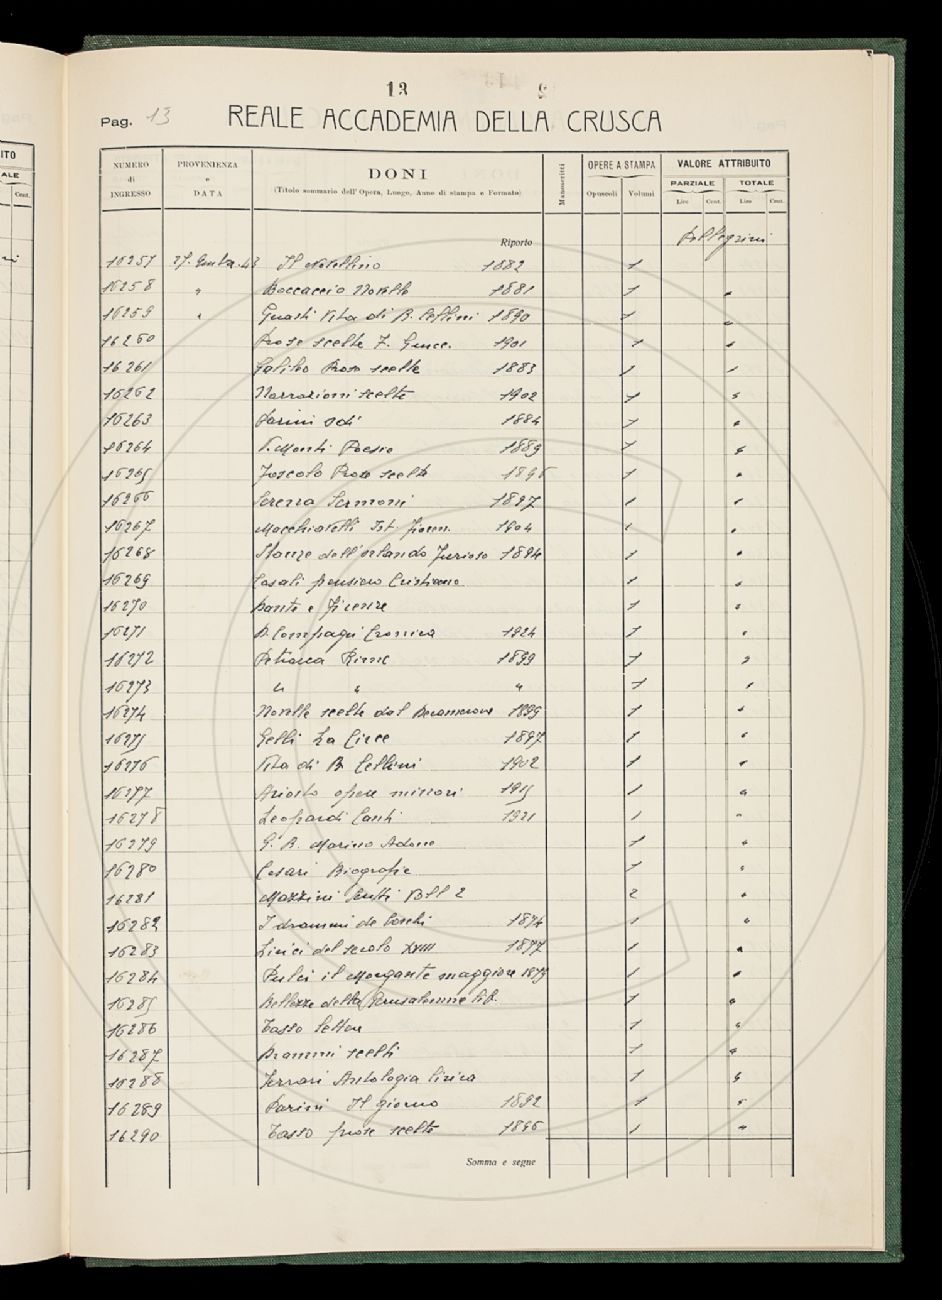 13
Pag. 13 REALE ACCADEMIA DELLA CRUSCA
NUMERO di INGRESSO PROVENIENZA e DATA DONI (Titolo sommario dell'Opera, Luogo, Anno di stampa e Formato) Manoscritti OPERE A STAMPA Opuscoli Volumi VALORE ATTRIBUITO PARZIALE Lire Cent. TOTALE Lire Cent.
Riporto Pellegrini
16257 27. 43 Il Novellino 1882 1
16258 " Boccaccio Novelle 1881 1 "
16259 " Guasti Vita di B. Cellini 1890 1 "
16260 Prose scelte F. 1901 1 "
16261 Galileo Prose scelte 1883 1 "
16262 Narrazioni scelte 1902 1 "
16263 Parini Odi 1884 1 "
16264 V. Monti Poesie 1889 1 "
16265 Foscolo Prose scelte 1896 1 "
16266 Sermoni 1897 1 "
16267 Macchiavelli Ist. fioren. 1904 1 "
16268 Stanze dell'orlando Furioso 1894 1 "
16269 Casali pensiero Cristiano 1 "
16270 Dante e Firenze 1 "
16271 D. Compagni Cronica 1924 1 "
16272 Petrarca Rime 1899 1 "
16273 " " " 1 "
16274 Novelle scelte dal Decamerone 1899 1 "
16275 Gelli La Circe 1897 1 "
16276 Vita di B. Cellini 1902 1 "
16277 Ariosto opere minori 1915 1 "
16278 Leopardi Canti 1921 1 "
16279 G. B. Marino Adone 1 "
16280 Cesari Biografie 1 "
16281 Mazzini Scritti Voll 2 2 "
16282 I drammi de boschi 1874 1 "
16283 Lirici del secolo XVIII 1877 1 "
16284 Pulci il Morgante maggiore 1 "
16285 Bellezze della Gerusalemme lib. 1 "
16286 Tasso Lettere 1 "
16287 Drammi scelti 1 "
16288 Ferrari Antologia lirica 1 "
16289 Parini Il giorno 1892 1 "
16290 Tasso prose scelte 1896 1 "
Somma e segue